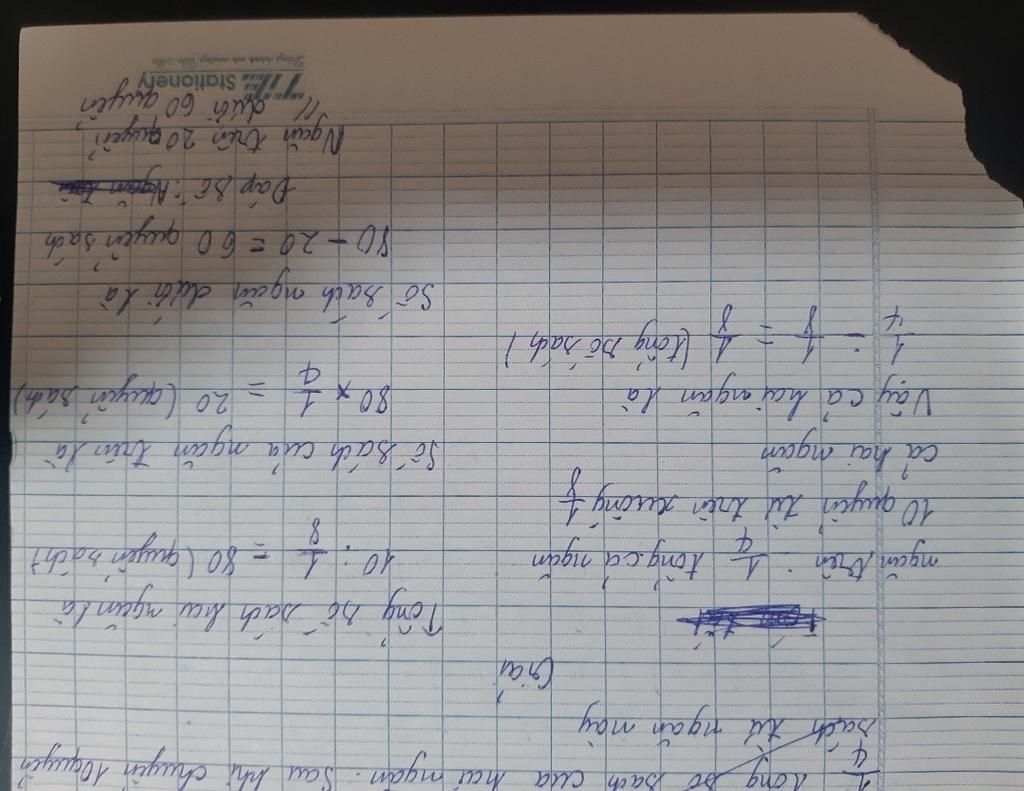 1/4 tổng số sách của hai ngăn. Sau khi chuyển 10 quyển
sách từ ngăn này
Giải
ngăn trên : 1/4 tổng cả ngăn
10 quyển từ trên xuống 1/8
cả hai ngăn
Vậy cả hai ngăn là
1/4 - 1/8 = 1/8 (tổng số sách)
Tổng số sách hai ngăn là
10 : 1/8 = 80 (quyển sách)
Số sách của ngăn trên là
80 x 1/4 = 20 (quyển sách)
Số sách ngăn dưới là
80 - 20 = 60 quyển sách
Đáp số :
Ngăn trên 20 quyển
// dưới 60 quyển
TL Stationery